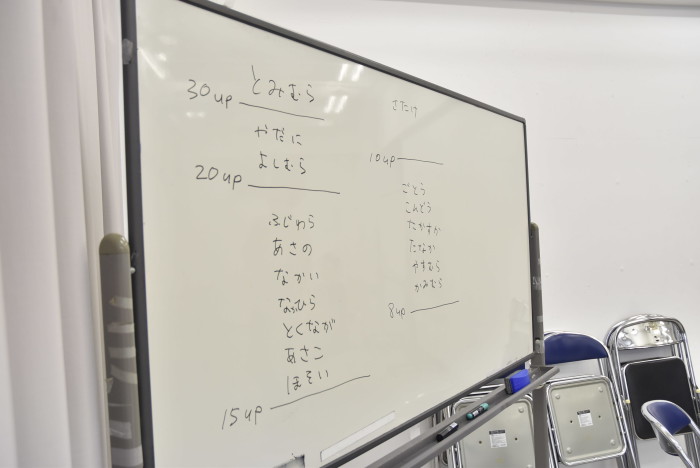 とみむら
30up
やだに
よしむら
20up
ふじわら
あさの
なかい
なっひら
とくなが
あさこ
ほそい
15up
さたけ
10up
ごとう
こんどう
たかすか
たなか
やすむら
かみむら
8up